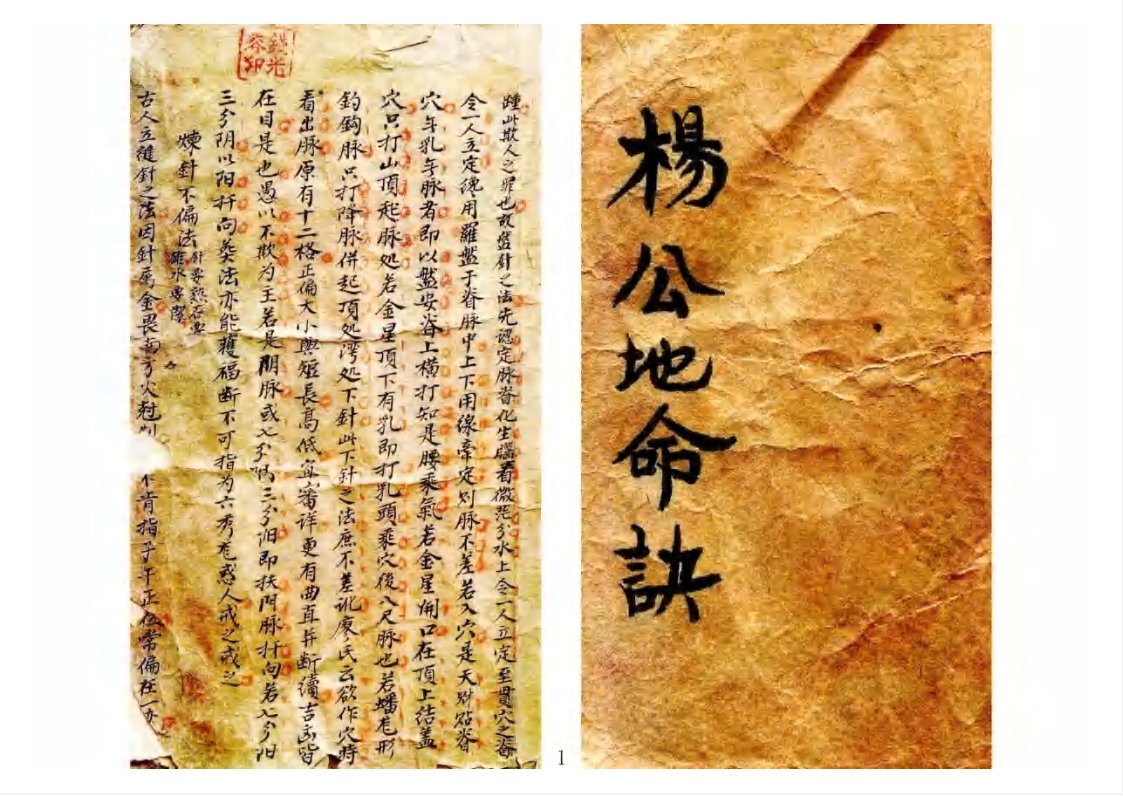 楊公地命訣
踵此欺人之罪也故盤針之法先認定脉脊化生腦看微茫分水上令一人立定至貫穴之脊
令一人立定纔用羅盤于脊脉中上下用線牽定刘脉不差若入穴是天財點脊
穴与乳与脉者即以盤安脊上横打知是腰乘氣若金星開口在頂上結盖
穴只打山頂起脉处若金星頂下有乳即打乳頭乘穴後八尺脉也若蟠龙形
釣鈎脉只打降脉併起頂处湾处下針此下針之法庶不差訛廖氏云欲作穴時
看出脉原有十二格正偏大小與短長高低宜審详更有曲直并断續吉凶皆
在目是也愚以不欺为主若是阴脉或七分阴三分阳即扶阴脉扦向若七分阳
三分阴以阳扦向葵法亦能獲福断不可指为六秀龙惑人戒之戒之
煉針不偏法針要熟石要
古人立縫針之法因針属金畏南方火尅 不肯指子午正位常偏在一办
鏡光
1